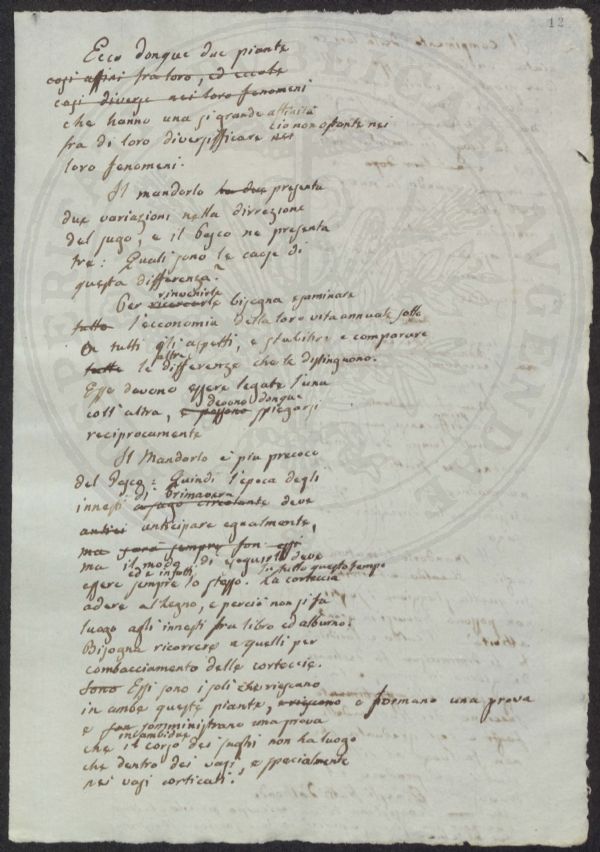 12
Ecco donque due piante
cosi affini fra loro, ed eccole
casi diverse nei loro fenomeni
che hanno una si grande affinità
fra di loro diversifficare cio non ostante nei
loro fenomeni.
Il mandorlo ha due presenta
due variazioni nella dirrezione
del sugo, e il Pesco ne presenta
tre: Quali sono le cause di
questa differenza?
Per ricercarle rinvenirle bisogna esaminare
tutto l'ecconomia della loro vita annuale sotto
tutti gli aspetti, e stabilire e comparare
tutte le altre differenze che le distinguono.
Esse devono essere legate l'una
coll'altra, e possono devono donque spiegarsi
reciprocamente
Il Mandorlo è più precoce
del Pesco: Quindi l'epoca degli
innesti di primavera a sugo circolante deve
antici anticipare egualmente,
ma sarà sempre son essi
ma il modo di eseguirli deve
essere sempre lo stesso. ed è infatti in tutto questo tempo La corteccia
adere al legno, e perciò non si fa
luogo agli innesti fra libro ed alburno.
Bisogna ricorrere a quelli per
combacciamento delle corteccie.
Sono Essi sono i soli che riescano
in ambe queste piante, e riescono e formano una prova
e son somministrano una prova
che il corso dei sughi non ha luogo in ambidue
che dentro dei vasi, e specialmente
nei vasi corticali.